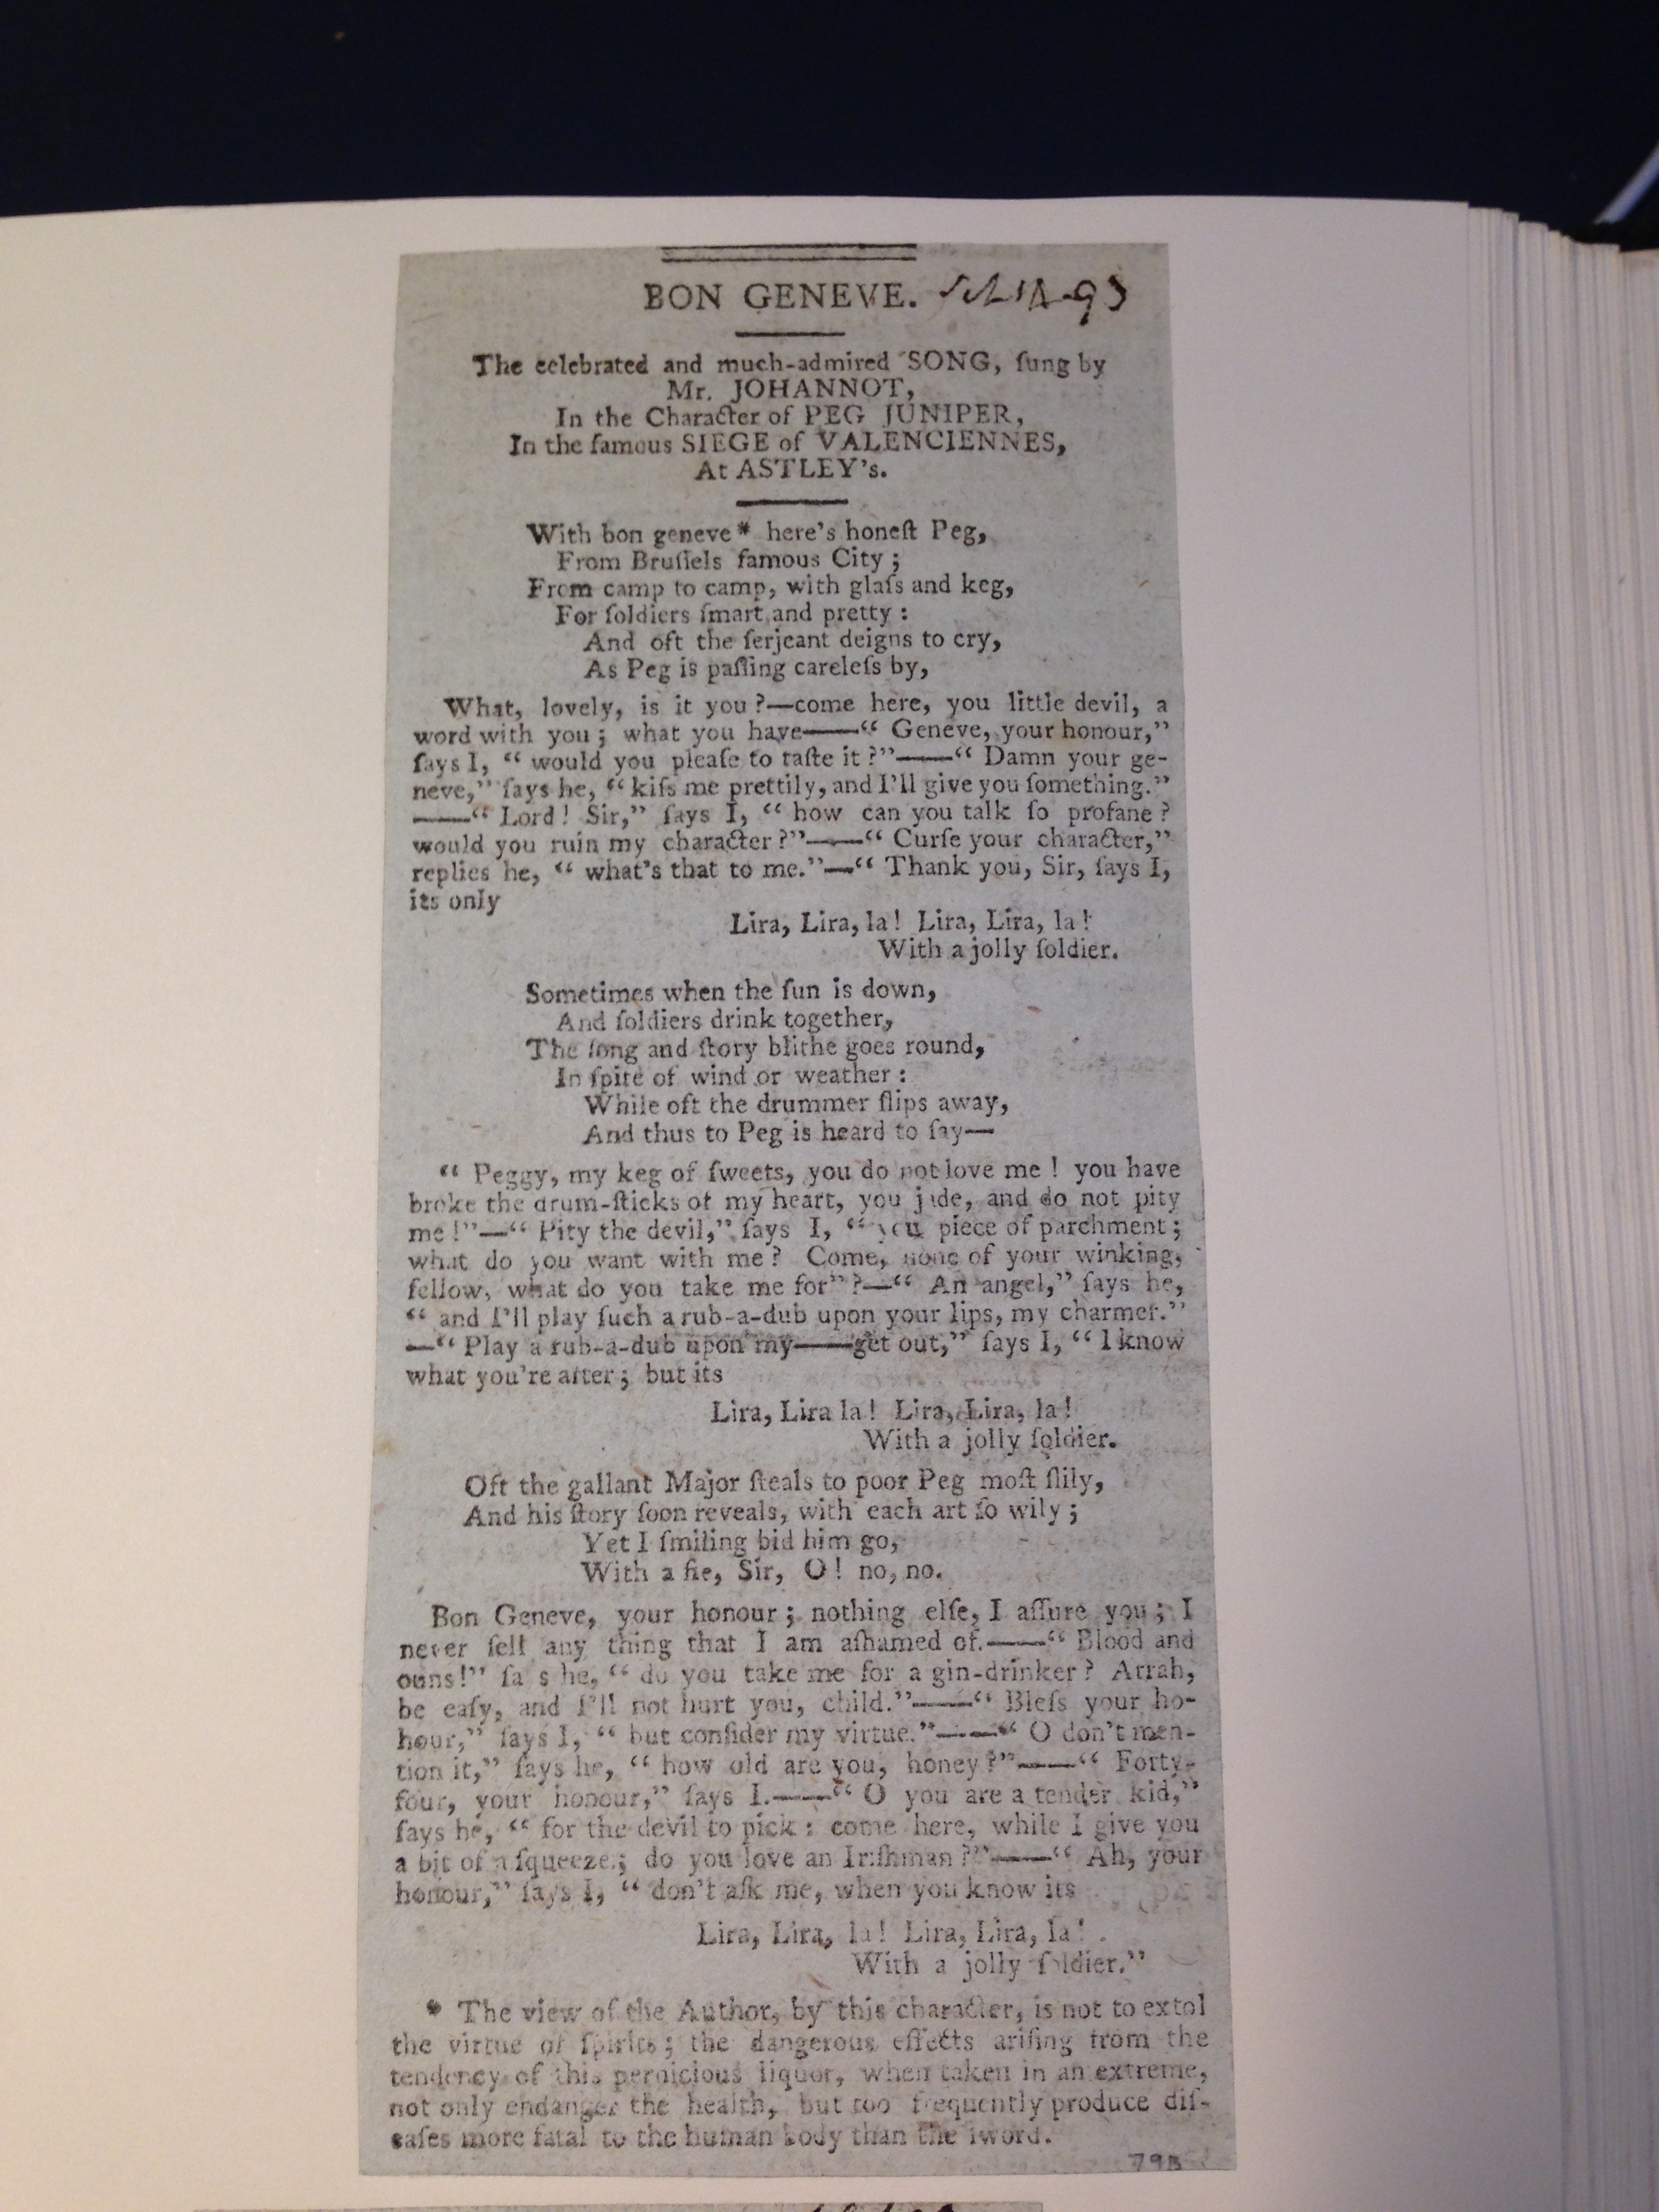 BON GENEVE.
The celebrated and much-admired SONG, ſung by
Mr. JOHANNOT,
In the Character of PEG JUNIPER,
In the famous SIEGE of VALENCIENNES,
At ASTLEY's.
With bon geneve* here's honeſt Peg,
From Bruſſels famous City ;
From camp to camp, with glaſs and keg,
For ſoldiers ſmart and pretty :
And oft the ſerjeant deigns to cry,
As Peg is paſſing careleſs by,
What, lovely, is it you ?—come here, you little devil, a
word with you ; what you have——“ Geneve, your honour,”
ſays I, “ would you pleaſe to taſte it ?”——“ Damn your ge-
neve,” ſays he, “ kiſs me prettily, and I'll give you ſomething.”
——“ Lord ! Sir,” ſays I, “ how can you talk ſo profane ?
would you ruin my character ?”——“ Curſe your character,”
replies he, “ what's that to me.”—“ Thank you, Sir, ſays I,
its only
Lira, Lira, la ! Lira, Lira, la !
With a jolly ſoldier.
Sometimes when the ſun is down,
And ſoldiers drink together,
The ſong and ſtory blithe goes round,
In ſpite of wind or weather :
While oft the drummer ſlips away,
And thus to Peg is heard to ſay—
“ Peggy, my keg of ſweets, you do not love me ! you have
broke the drum-ſticks of my heart, you jade, and do not pity
me !”—“ Pity the devil,” ſays I, “ you piece of parchment ;
what do you want with me ? Come, none of your winking,
fellow, what do you take me for” ?—“ An angel,” ſays he,
“ and I'll play ſuch a rub-a-dub upon your lips, my charmer.”
—“ Play a rub-a-dub upon my——get out,” ſays I, “ I know
what you're after ; but its
Lira, Lira la ! Lira, Lira, la !
With a jolly ſoldier.
Oft the gallant Major ſteals to poor Peg moſt ſlily,
And his ſtory ſoon reveals, with each art ſo wily ;
Yet I ſmiling bid him go,
With a fie, Sir, O ! no, no.
Bon Geneve, your honour ; nothing elſe, I aſſure you ; I
never ſell any thing that I am aſhamed of.——“ Blood and
ouns!” ſa s he, “ do you take me for a gin-drinker ? Arrah,
be eaſy, and I'll not hurt you, child.”——“ Bleſs your ho-
hour,” ſays I, “ but conſider my virtue.”——“ O don't men-
tion it,” ſays he, “ how old are you, honey ?”——“ Forty-
four, your honour,” ſays I.——“ O you are a tender kid,”
ſays he, “ for the devil to pick : come here, while I give you
a bit of a ſqueeze ; do you love an Iriſhman ?”——“ Ah, your
honour,” ſays I, “ don't aſk me, when you know its
Lira, Lira, la ! Lira, Lira, la !
With a jolly ſoldier.”
* The view of the Author, by this character, is not to extol
the virtue of ſpirits ; the dangerous effects ariſing from the
tendency of this pernicious liquor, when taken in an extreme,
not only endanger the health, but too frequently produce diſ-
eaſes more fatal to the human body than the ſword.